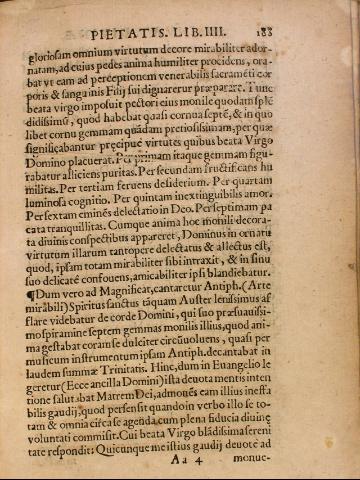 PIETATIS. LIB. IIII. 188
gloriosam omnium virtutum decore mirabiliter ador-
natam, ad cuius pedes anima humiliter procidens, ora-
bat vt eam ad perceptionem venerabilis sacramēti cor
poris & sanguinis Filij sui dignarerur præparare. Tunc
beata virgo imposuit pectori eius monile quodam splē
didissimū, quod habebat quasi cornua septē, & in quo
libet cornu gemmam quādam pretiosissimam, per quæ
significabantur præcipuę virtutes quibus beata Virgo
Domino placuerat. Per primam itaque gemmam figu-
rabatur alliciens puritas. Per secundam fructificans hu
militas. Per tertiam feruens desiderium. Per quartam
luminosa cognitio. Per quintam inextinguibilis amor.
Per sextam eminēs delectatio in Deo. Per septimam pa
cata tranquillitas. Cumque anima hoc monili decora-
ta diuinis conspectibus appareret, Dominus in ornatu
virtutum illarum tantopere delectatus & allectus est,
quod, ipsam totam mirabiliter sibi intraxit, & in sinu
suo delicatè confouens, amicabiliter ipsi blandiebatur.
¶Dum vero ad Magnificat, cantaretur Antiph. (Arte
mirabili) Spiritus sanctus tāquam Auster lenissimus af
flare videbatur de corde Domini, qui suo præsuauissi-
mo spiramine septem gemmas monilis illius, quod ani-
ma gestabat coram se dulciter circūuoluens, quasi per
musicum instrumentum ipsam Antiph. decantabat in
laudem summæ Trinitatis. Hinc, dum in Euangelio le
geretur (Ecce ancilla Domini) ista deuota mentis inten
tione salutabat Matrem Dei, admonēs eam illius ineffa
bilis gaudij, quod persensit quando in verbo illo se to-
tam & omnia circa se agenda cum plena fiducia diuinę
voluntati commisit. Cui beata Virgo blādissima sereni
tate respondit: Quicunque me istius gaudij deuotè ad
Aa 4 monue-